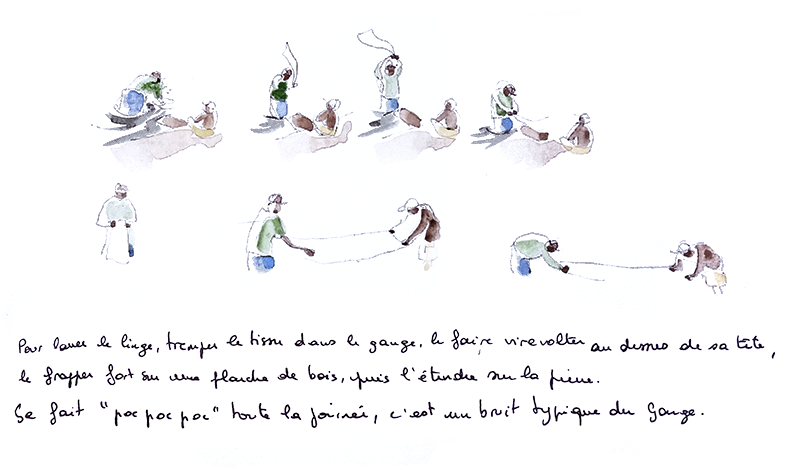 Pour laver le linge, tremper le tissu dans le gange, le faire virevolter au dessus de sa tête,
le frapper fort sur une planche de bois, puis l'étendre sur la pierre.
Ça fait "poc poc poc" toute la journée, c'est un bruit typique du Gange.